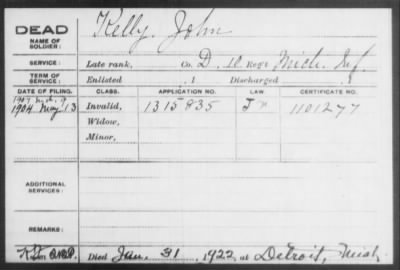 DEAD
NAME OF SOLDIER:
Kelly, John
SERVICE:
Late rank, Co. D, 10 Reg't Mich. Inf.
TERM OF SERVICE:
Enlisted , 1 Discharged , 1
DATE OF FILING. CLASS. APPLICATION NO. LAW. CERTIFICATE NO.
1907
1904 May 13 Invalid, 1315835 1101277
Widow,
Minor,
ADDITIONAL SERVICES:
REMARKS:
Died Jan. 31, 1922 at Detroit, Mich.